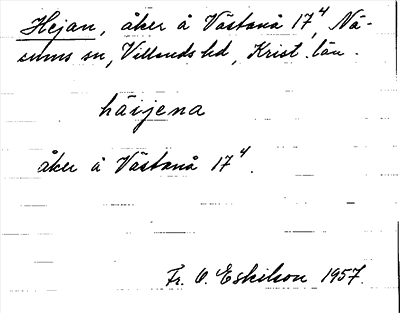 Hejan, åker å Västanå 17⁴, Nä-
sums sn, Villands hd, Krist. län.
häijena
åker å Västanå 17⁴.
Fr. O. Eskilson 1957.